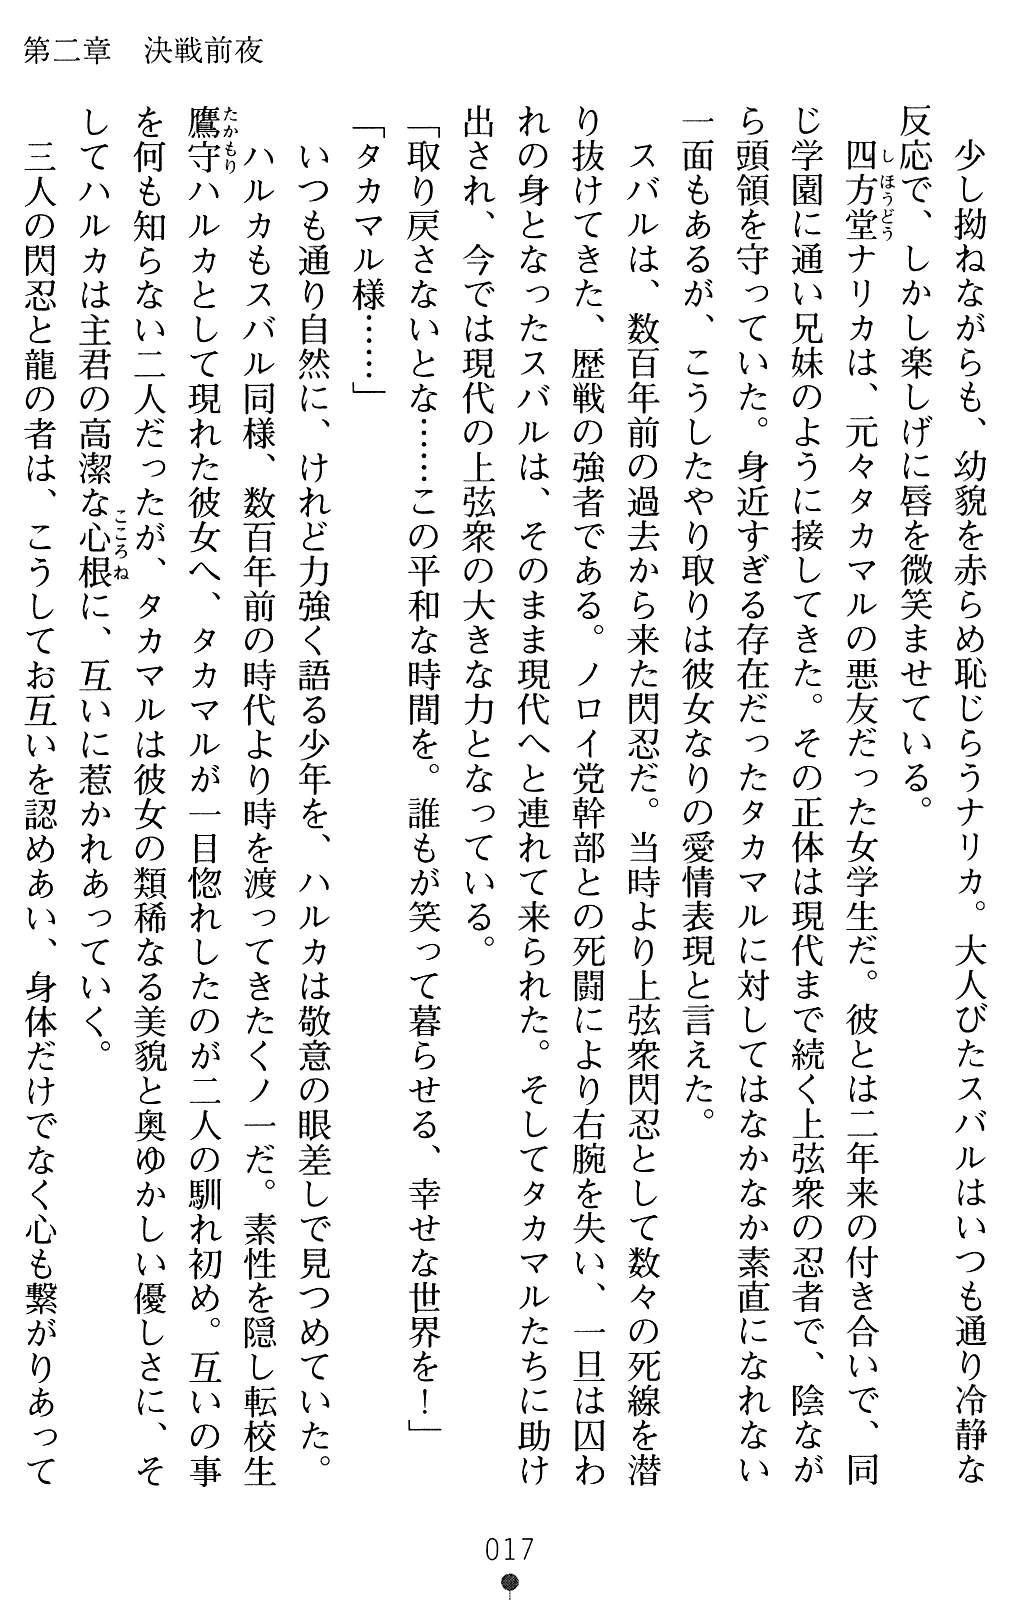 第二章　決戦前夜
少し拗ねながらも、幼貌を赤らめ恥じらうナリカ。大人びたスバルはいつも通り冷静な
反応で、しかし楽しげに唇を微笑ませている。
四方堂ナリカは、元々タカマルの悪友だった女学生だ。彼とは二年来の付き合いで、同
しほうどう
じ学園に通い兄妹のように接してきた。その正体は現代まで続く上弦衆の忍者で、陰なが
ら頭領を守っていた。身近すぎる存在だったタカマルに対してはなかなか素直になれない
一面もあるが、こうしたやり取りは彼女なりの愛情表現と言えた。
スバルは、数百年前の過去から来た閃忍だ。当時より上弦衆閃忍として数々の死線を潜
り抜けてきた、歴戦の強者である。ノロイ党幹部との死闘により右腕を失い、一旦は囚わ
れの身となったスバルは、そのまま現代へと連れて来られた。そしてタカマルたちに助け
出され、今では現代の上弦衆の大きな力となっている。
「取り戻さないとな……この平和な時間を。誰もが笑って暮らせる、幸せな世界を！」
「タカマル様……」
いつも通り自然に、けれど力強く語る少年を、ハルカは敬意の眼差しで見つめていた。
ハルカもスバル同様、数百年前の時代より時を渡ってきたくノ一だ。素性を隠し転校生
鷹守ハルカとして現れた彼女へ、タカマルが一目惚れしたのが二人の馴れ初め。互いの事
たかもり
を何も知らない二人だったが、タカマルは彼女の類稀なる美貌と奥ゆかしい優しさに、そ
してハルカは主君の高潔な心根に、互いに惹かれあっていく。
こころね
三人の閃忍と龍の者は、こうしてお互いを認めあい、身体だけでなく心も繋がりあって
017